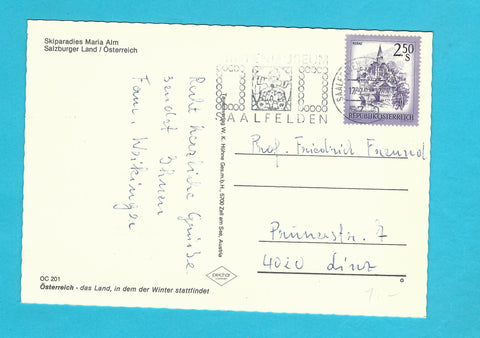 Skiparadies Maria Alm
Salzburger Land / Österreich
Recht herzliche Grüße
sendet Ihnen
Fam. Weikinger
OC 201
Österreich - das Land, in dem der Winter stattfindet
W. K. Höhne Ges.m.b.H., 5700 Zell am See, Austria
MUSEUM
SAALFELDEN
2.50
S
REPUBLIK ÖSTERREICH
Prof. Friedrich Freund
Prunerstr. 7
4020 Linz
1.-